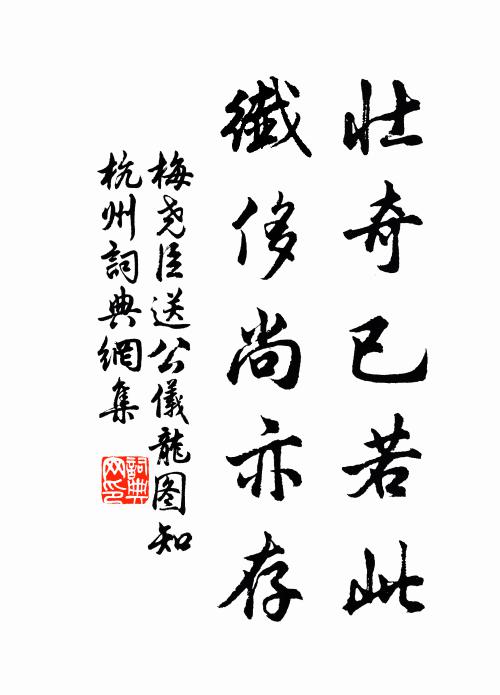 壯奇已若此
纖侈尚亦存
梅尧臣送公儀龍图知
杭州詞典網集
詞典
网印